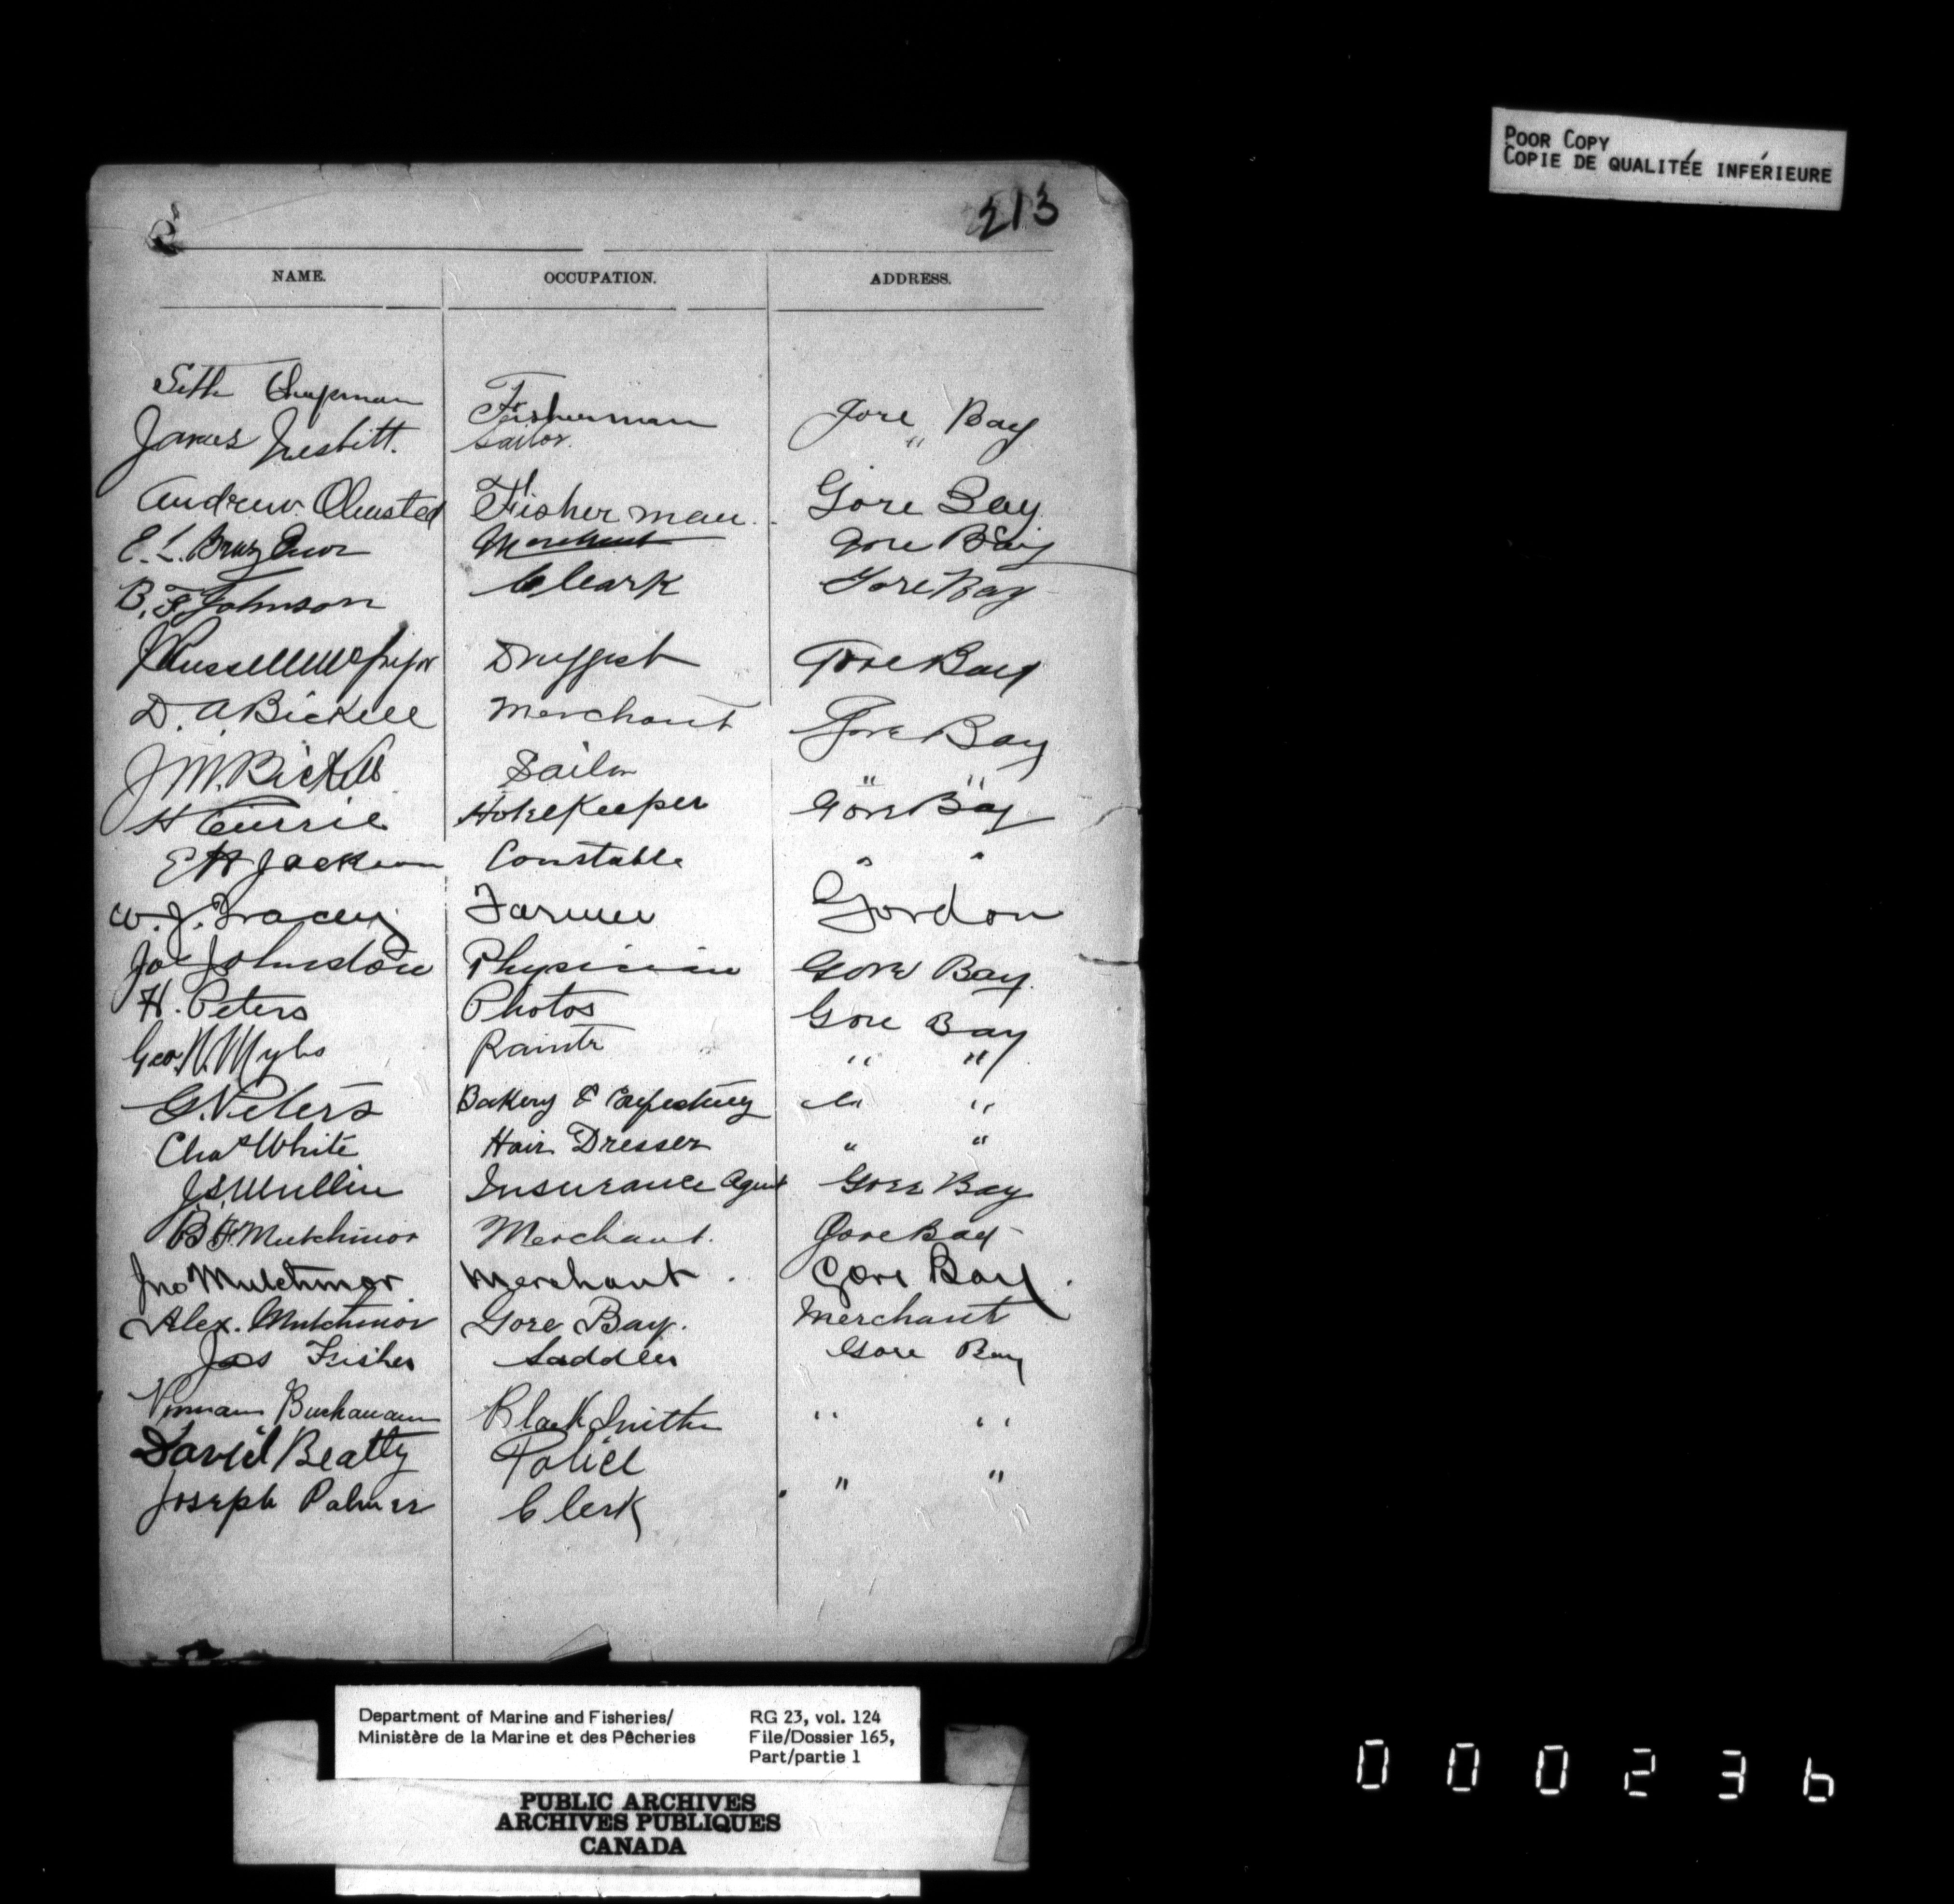 POOR COPY
COPIE DE QUALITÉE INFÉRIEURE
213
NAME. OCCUPATION. ADDRESS.
Seth Chapman Fisherman Gore Bay
James Nesbitt. Sailor. " "
Andrew Olmsted Fisherman. Gore Bay
E. L. Merchant Gore Bay
B. F. Johnson Cleark Gore Bay
Druggist Gore Bay
D. A Bickell Merchant Gore Bay
J M. Bickell Sailor " "
H Currie Hotelkeeper Gore Bay
E H Jackson Constable " "
W. J. Tracey Farmer Gordon
Jas Johnston Physician Gore Bay
H. Peters Photos Gore Bay
Geo. Paintr " "
G. Peters Bakery & " "
Chas White Hair Dresser " "
J S Mullin Insurance Agent Gore Bay
B F. Mutchmor Merchant. Gore Bay
Jno Mutchmor Merchant. Gore Bay.
Alex. Mutchmor Gore Bay. Merchant
Jas Fisher Saddler Gore Bay
Norman Buchanan BlackSmith " "
David Beatty Police " "
Joseph Palmer Clerk
Department of Marine and Fisheries/ RG 23, vol. 124
Ministère de la Marine et des Pêcheries File/Dossier 165,
Part/partie 1
PUBLIC ARCHIVES
ARCHIVES PUBLIQUES
CANADA
000236